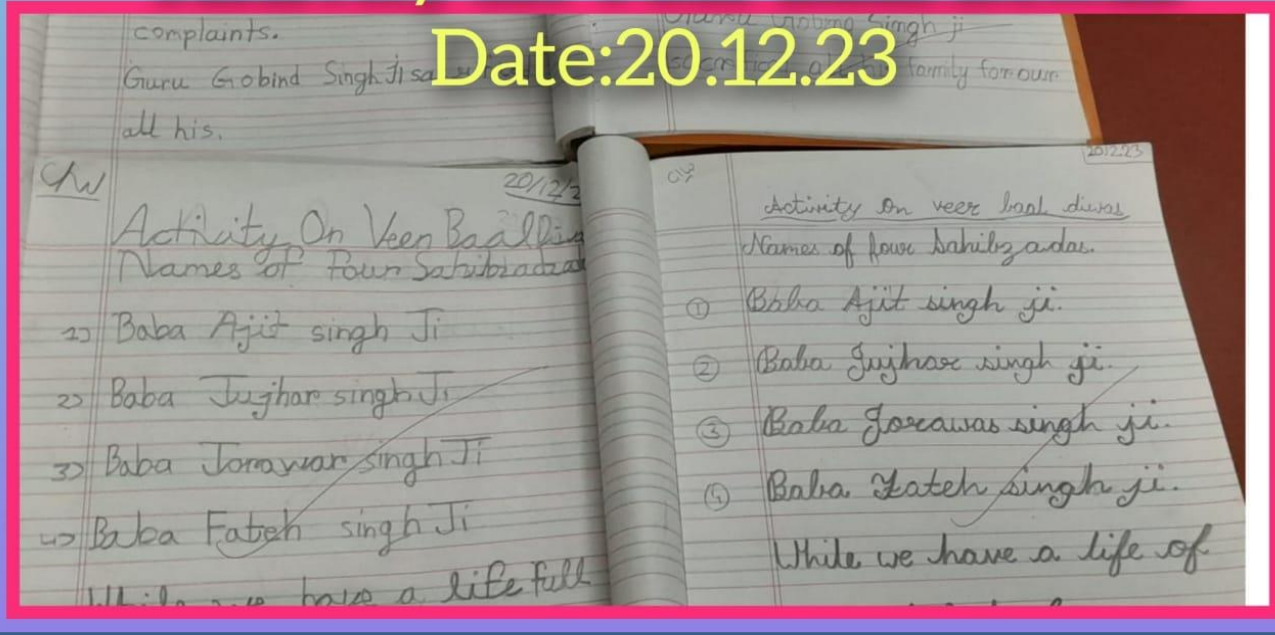 Date:20.12.23
complaints.
Guru Gobind Singh Ji
all his.
Singh ji
family for our
CW
20/12/2
Activity On Veer Baal
Names of four Sahibzada
1) Baba Ajit singh Ji
2) Baba Jujhar singh Ji
3) Baba Jorawar singh Ji
4) Baba Fateh singh Ji
have a life full
20.12.23
Activity on veer baal diwas
Names of four Sahibzadas.
① Baba Ajit singh ji.
② Baba Jujhar singh ji.
③ Baba Jorawar singh ji.
④ Baba Fateh singh ji.
While we have a life of